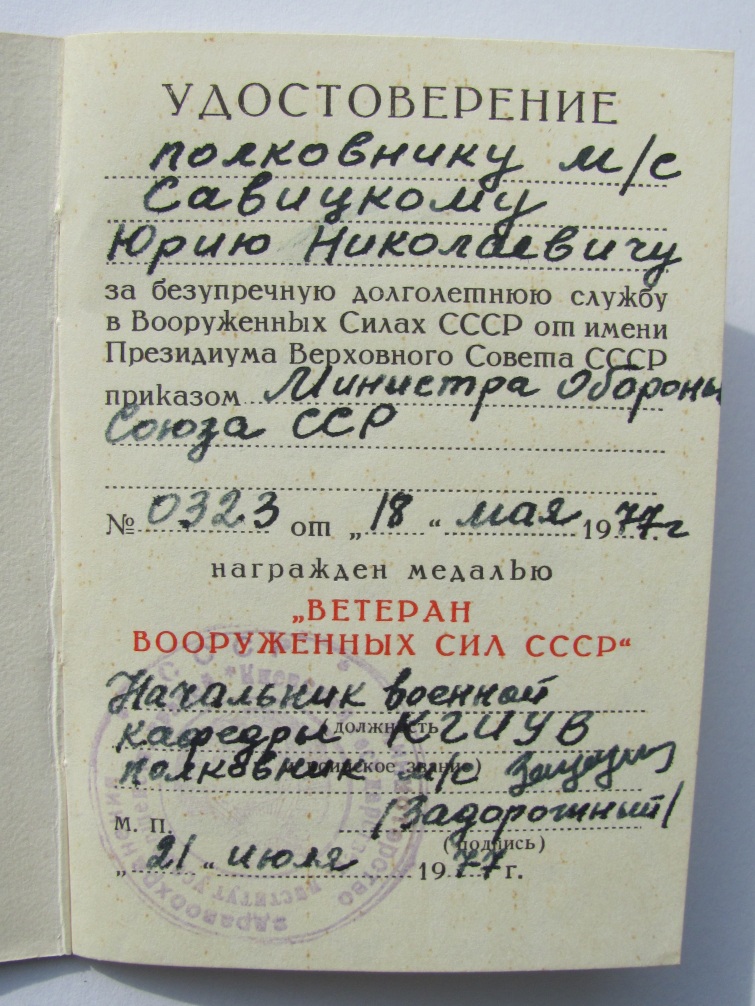 УДОСТОВЕРЕНИЕ
полковнику м/с
Савицкому
Юрию Николаевичу
за безупречную долголетнюю службу
в Вооруженных Силах СССР от имени
Президиума Верховного Совета СССР
приказом Министра Обороны
Союза ССР
№ 0323 от „18“ мая 1977 г
награжден медалью
„ВЕТЕРАН
ВООРУЖЕННЫХ СИЛ СССР“
Начальник военной
(должность)
кафедры КГИУВ
(воинское звание)
полковник м/с
/Задорожный/
М. П.
(подпись)
„21“ июля 1977 г.